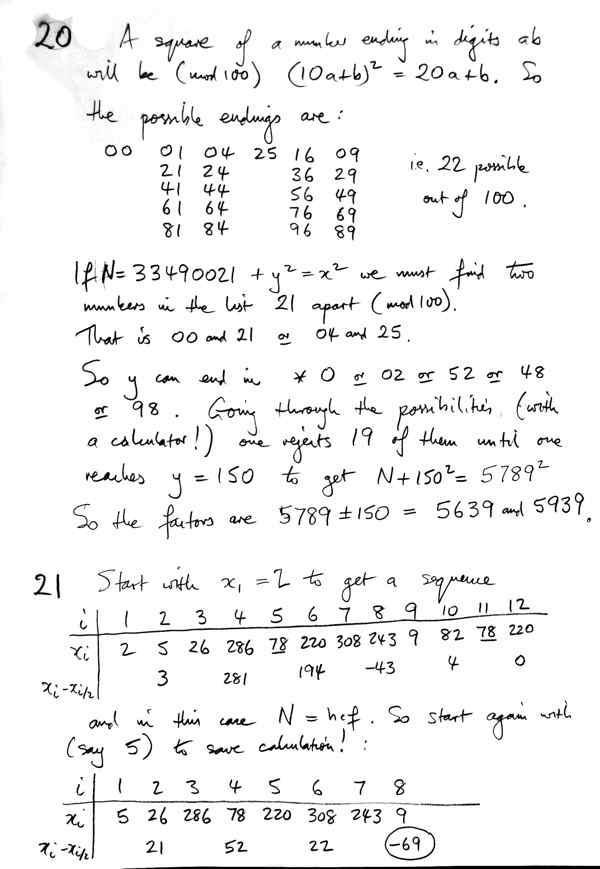 20 A square of a number ending in digits ab
will be (mod 100) (10a+b)² = 20a+b. So
the possible endings are:
00 01 04 25 16 09
21 24 36 29 i.e. 22 possible
41 44 56 49 out of 100.
61 64 76 69
81 84 96 89
If N = 33490021 + y² = x² we must find two
numbers in the list 21 apart (mod 100).
That is 00 and 21 or 04 and 25.
So y can end in * 0 or 02 or 52 or 48
or 98. Going through the possibilities, (with
a calculator!) one rejects 19 of them until one
reaches y = 150 to get N+150² = 5789²
So the factors are 5789 ± 150 = 5639 and 5939.
21 Start with x₁ = 2 to get a sequence
i 1 2 3 4 5 6 7 8 9 10 11 12
xᵢ 2 5 26 286 78 220 308 243 9 82 78 220
xᵢ-xᵢ/₂ 3 281 194 -43 4 0
and in this case N = hcf. So start again with
(say 5) to save calculation!:
i 1 2 3 4 5 6 7 8
xᵢ 5 26 286 78 220 308 243 9
xᵢ-xᵢ/₂ 21 52 22 -69